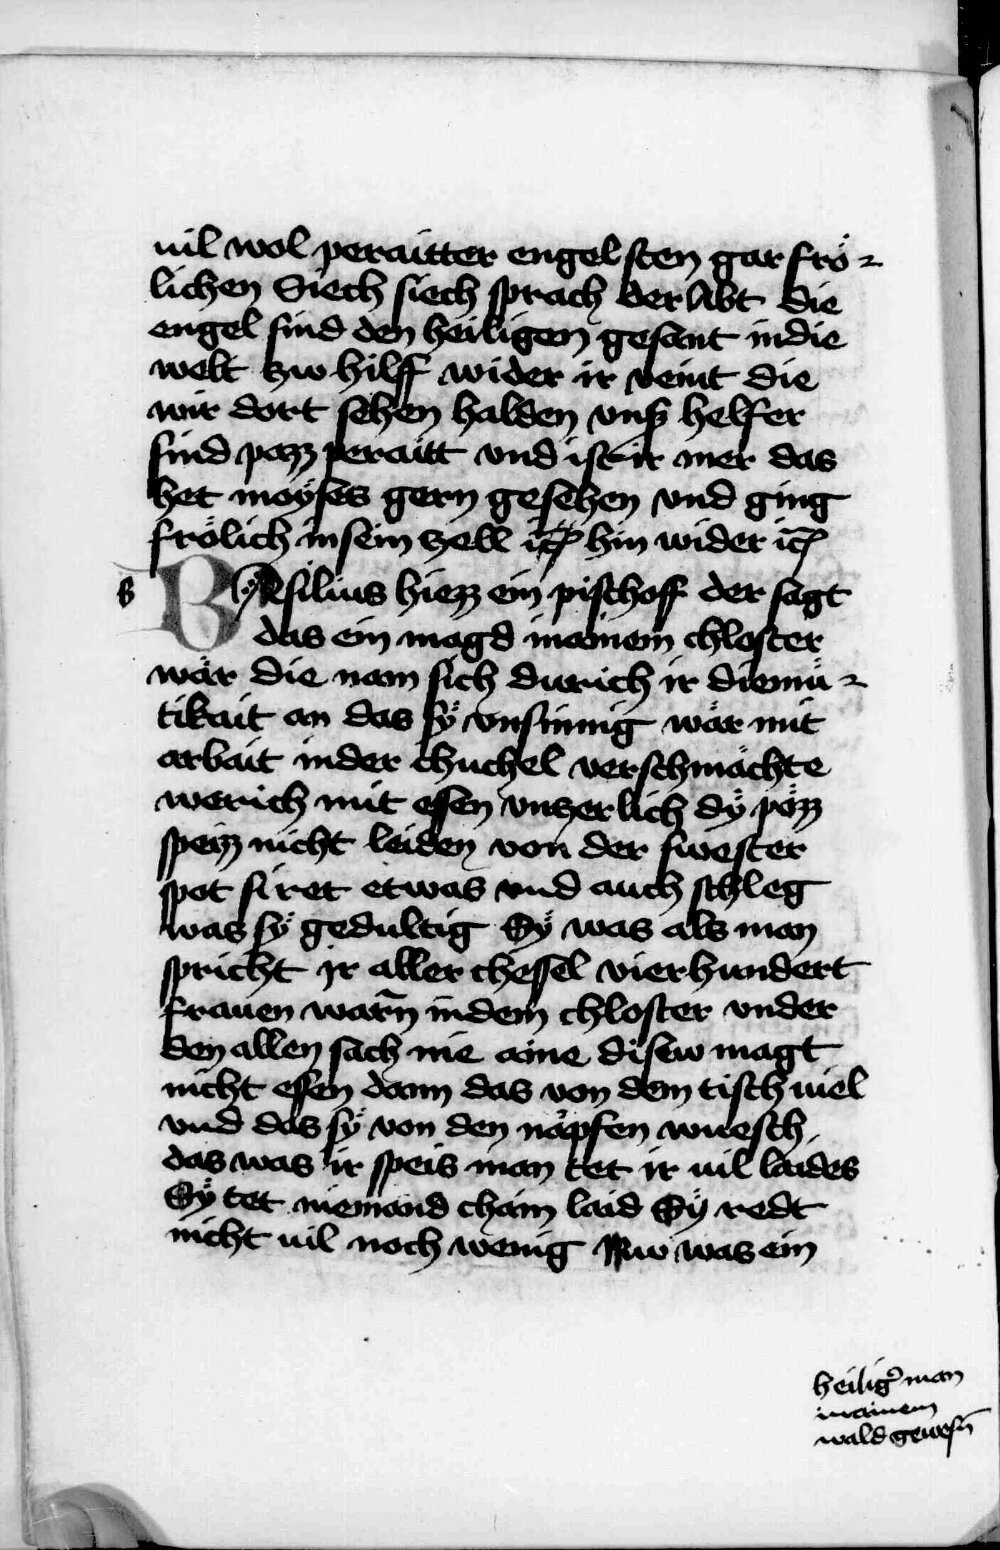 uil wol peraitter engel sten gar frö-
lichen Siech siech sprach der Abt die
engel sind den heiligen gesant indie
welt zw hilff wider ir veint die
wir dort sehen halden vnß helfer
sind pazz peraitt vnd ist ir mer das
het moyses gern gesehen vnd ging
frölich in sein zell hin wider
B BAsilius hiezz ein pischoff der sagt
das ein magd inainem chloster
wär die nam sich durich ir diemü-
tikait an das sÿ vnsinnig wär mit
arbait inder chuchel verschmächte
werich mit essen vnzerlich dÿ pözz
speizz nicht leiden von der swester
spot si ret etwas vnd auch schleg
was sÿ gedultig Sÿ was als man
spricht ir aller chessel vierhundert
frauen warn̄ indem chloster vnder
den allen sach nie aine disew magt
nicht essen dann das von dem tisch uiel
vnd das sÿ von den näpfen wuesch
das was ir speis man tet ir uil laides
Sÿ tet niemand chain laid Sÿ redt
nicht uil noch wenig Nw was ein
heilig̉ man
inainem
wald gewesn̄